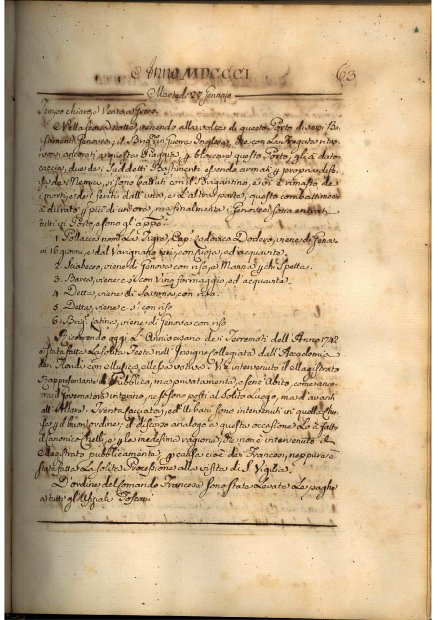 Anno MDCCCI
63
Martedì 27 Gennaio
Tempo chiaro, e Vento a Sirocco
Nella scorsa notte, venendo alla volta di questo Porto diversi Ba-
stimenti Genovesi, il Brig.no Guerra Inglese, che con la Fregata ritro-
vasi ancorati a questa Spiaggia, p bloccare questo Porto, gli à dato
caccia, due dei suddetti Bastimenti essendo armati p propria dife-
sa dei Nemici, si sono battuti con il Brigantino, e vi è rimasto de
i morti, e dei feriti dall' una, e l' altra parte, questo combattimento
à durato p più di un' ora, ma finalmente i Genovesi sono entrati
tutti in Porto, e sono gl' appo:
1. Pollacca nom.ta La Tigre, Cap. Lodovico Dodero, viene di Genova
in 16 giorni, e dal Varignano con ed acquavite.
2. viene di Genova con riso, e Manna, p la Spezia.
3. Barca, viene e s. con Vino formaggio, ed acquavite.
4. Detta, viene di Savona con riso.
5. Detta, viene e s. con riso
6. Brig. Latino, viene di Genova con riso
Ricorrendo oggi L' Anniversario dei Terremoti dell' Anno 1742
è stata fatta La solita Festa nell' Insigne Collegiata dall' Accademia
dei con Musica, alle ore Vi è intervenuto il Magistrato
Rappresentante il Pubblico, ma privatamente, e senz' Abito, come an-
il Governatore interino, nè si sono posti al Solito Luogo, ma davanti
all' Altare. Trenta Facciatori, ed Urbani sono intervenuti in quella Fun-
p il buon ordine; il discorso analogo a questa occasione Lo à fatto
il Canonico e p la medesima ragione, che non è intervenuto il
Magistrato pubblicamente, p causa cioè dei Francesi, neppure è
stata fatta La solita Processione alla visita di S. Vigilia.
D' ordine del Comando Francese sono state Levate Le paghe
a tutti gl' Ufiziali Toscani